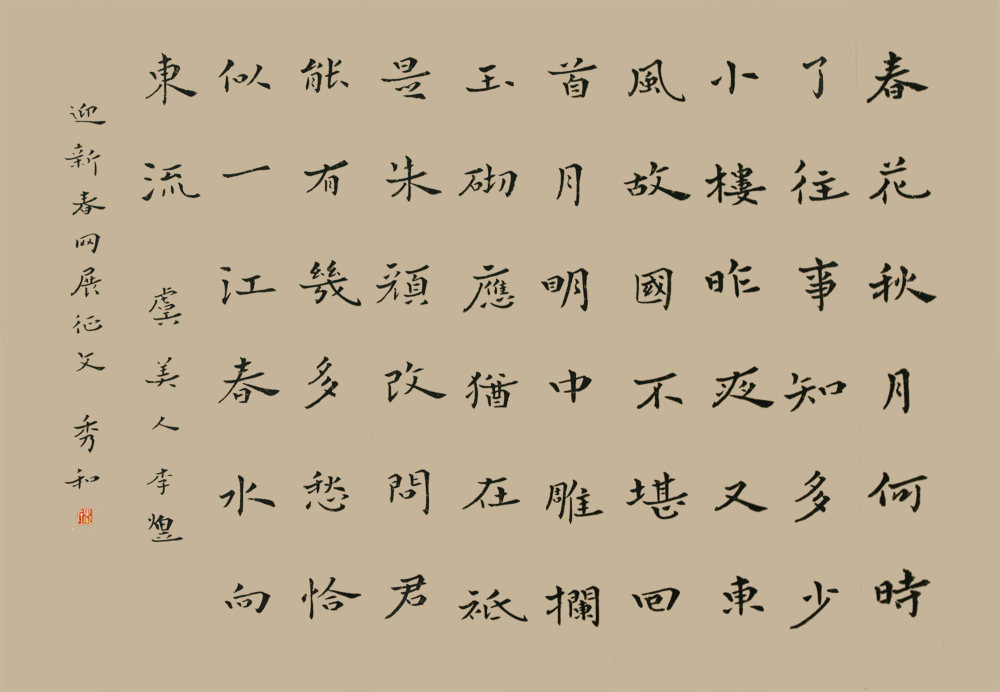 春花秋月何時
了往事知多少
小樓昨夜又東
風故國不堪回
首月明中雕欄
玉砌應猶在祗
是朱顏改問君
能有幾多愁恰
似一江春水向
東流 虞美人李煜
迎新春网展征文 秀和